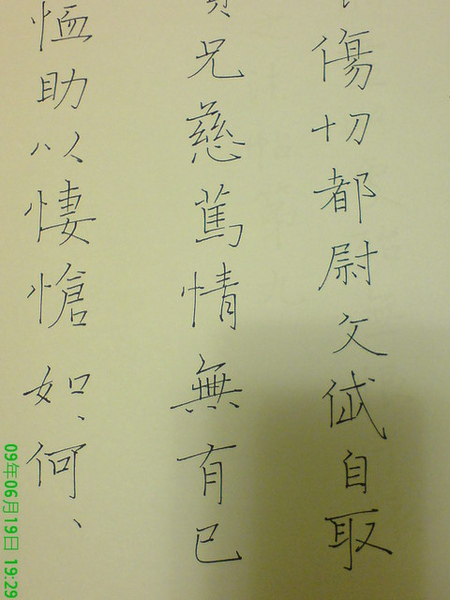 傷切都尉文自取
兄慈篤情無有已
恤助以悽愴如、何、
09年06月19日 19:29